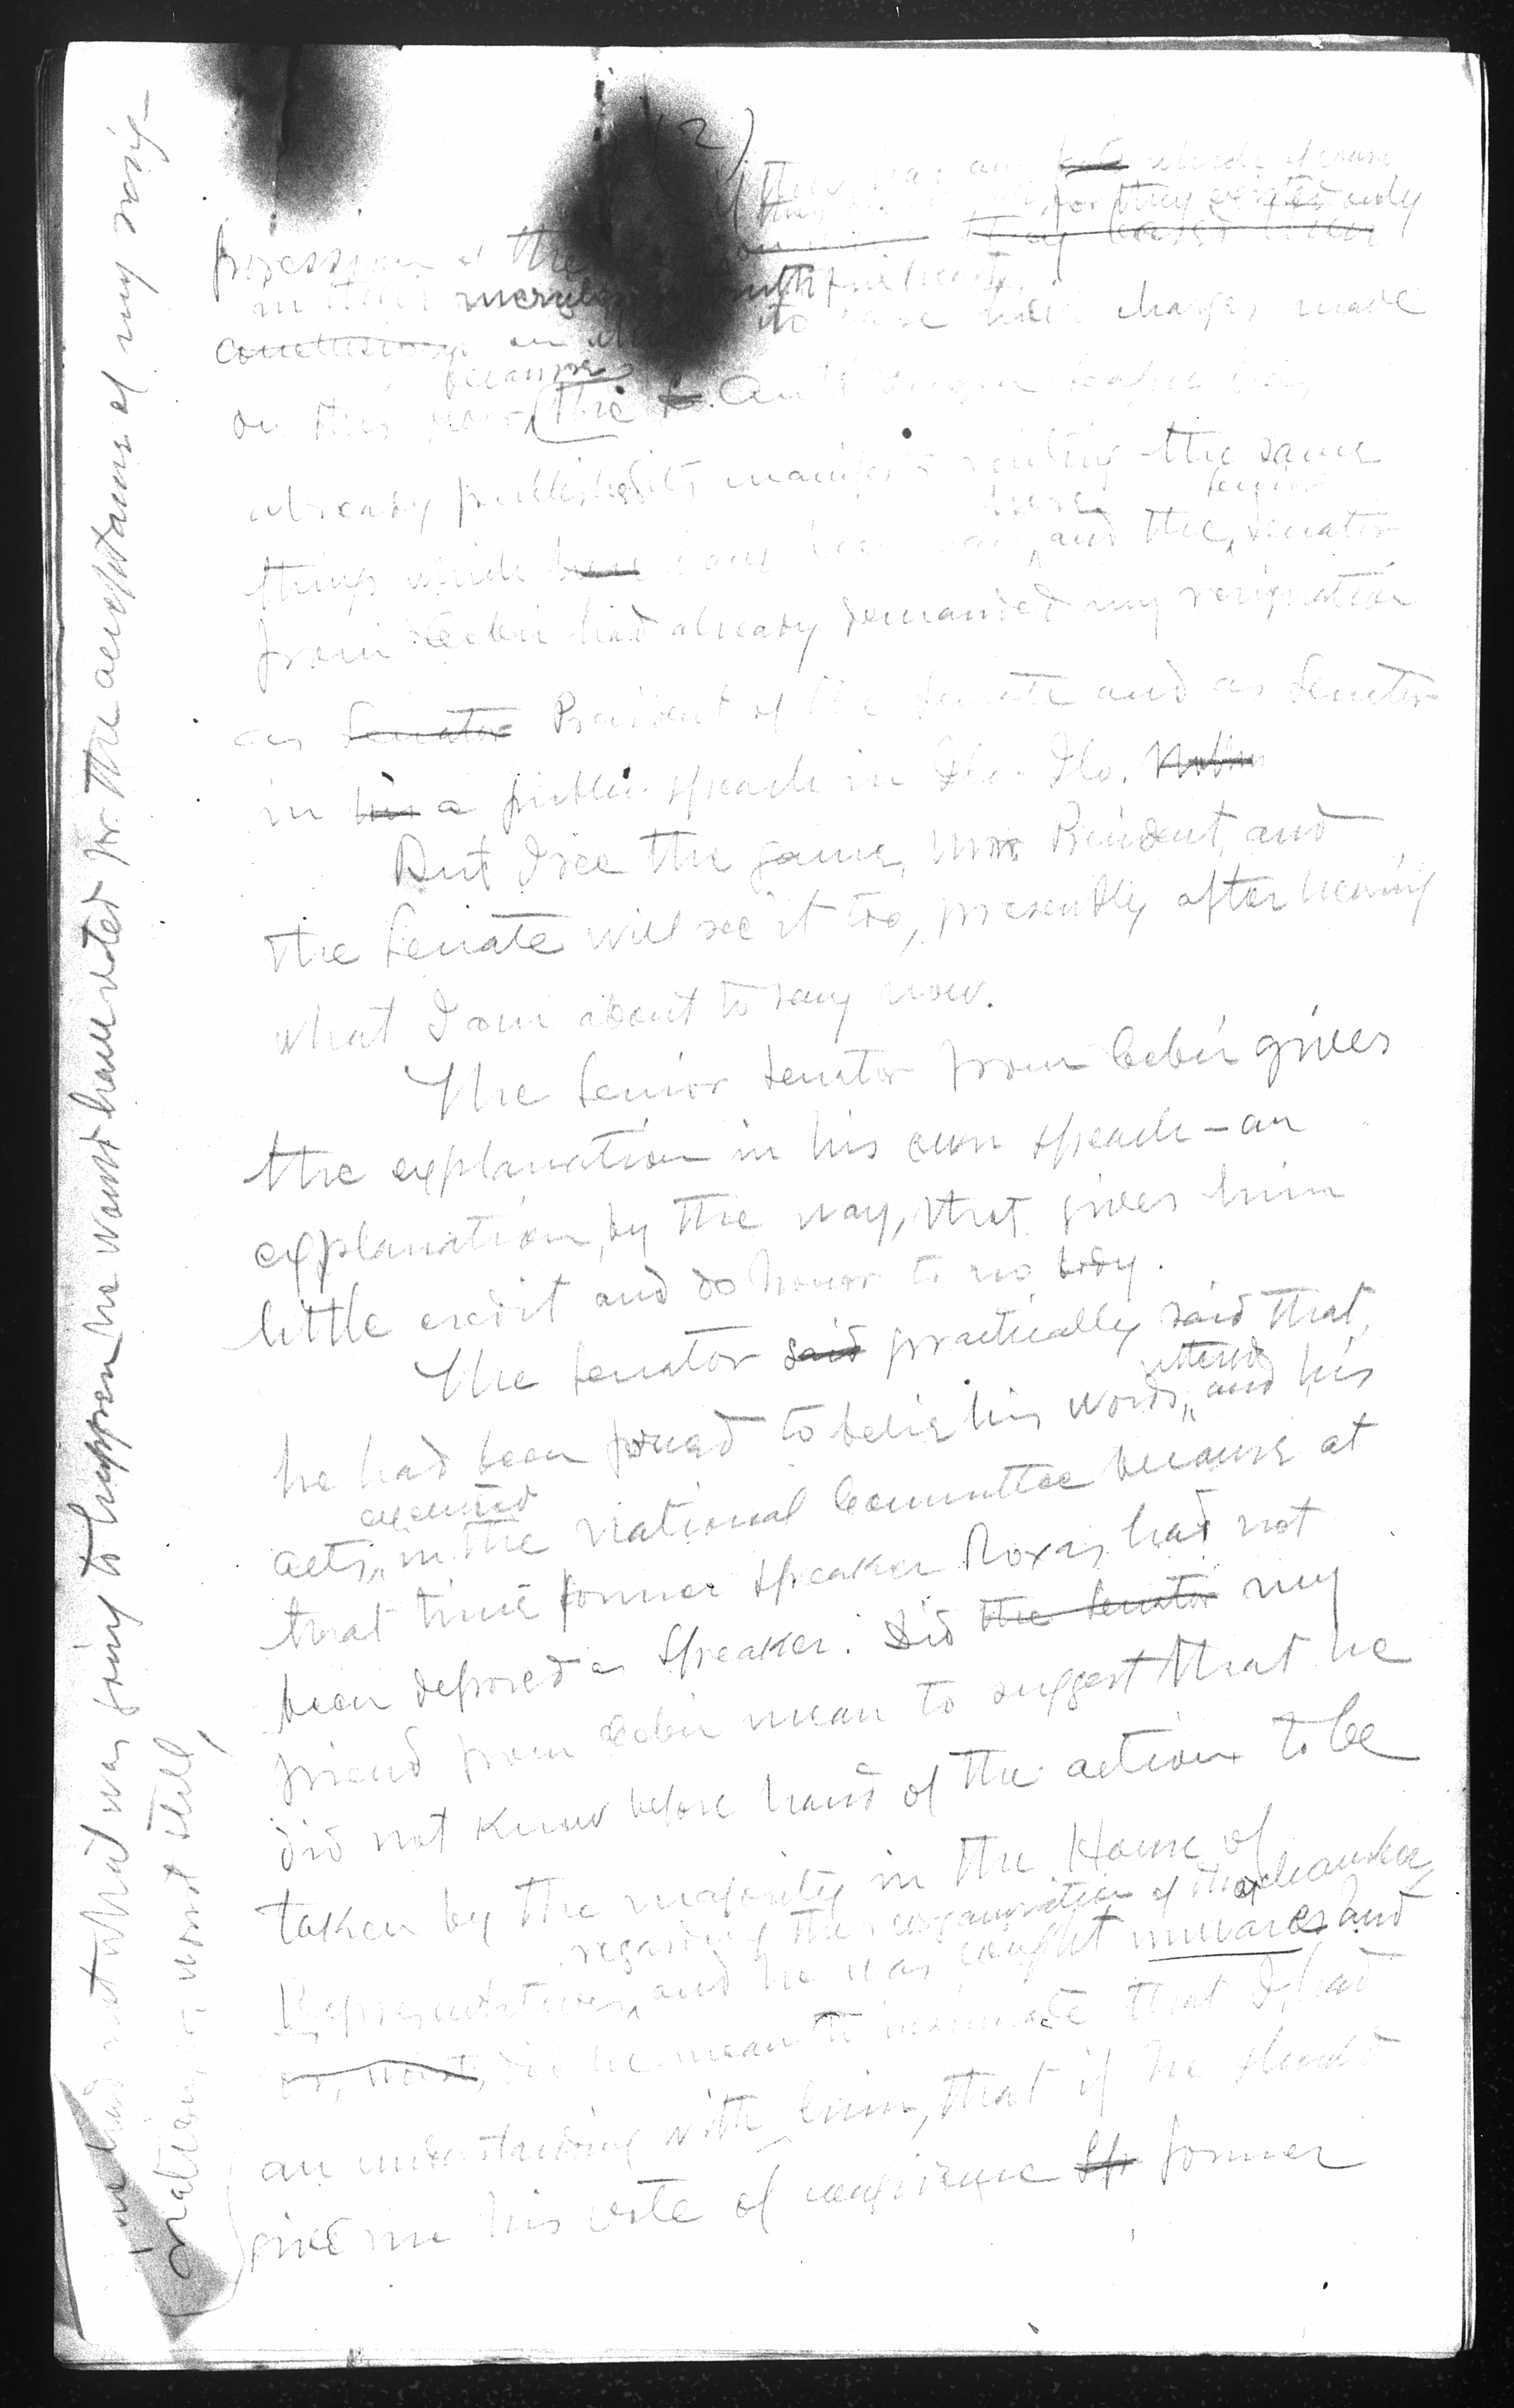 (2)
which of course
for they existed only
possession of the
in their
conclusions
to have charges made
because
on this floor, the Anti
already published its manifesto reciting the same
here senior
things which have been said and the Senator
from Cebú had already demanded my resignation
as Senator President of the Senate and as Senator
in his a public speach in Ilo-Ilo.
But I see the game, Mr. President, and
the Senate will see it too, presently after hearing
what I am about to say now.
The Senior Senator from Cebú gives
the explanation in his own speach - an
explanation, by the way, that gives him
little credit and do honor to no body.
The Senator said practically said that,
uttered
he had been forced to belie his words, and his
executed
acts, in the National Committee because at
that time former speaker Roxas had not
been deposed as Speaker. Did the Senator my
friend from Cebú mean to suggest that he
did not know before hand of the action to be
taken by the majority in the House of
regarding the reorganization of that chamber,
Representatives, and he was caught unwares and
or, worst, did he mean to insinuate that I had
an understanding with him, that if he should
give me his vote of confidence Sp former
had not what was going to happen he would have voted for the acceptance of my resig-
nation, or, worst still,